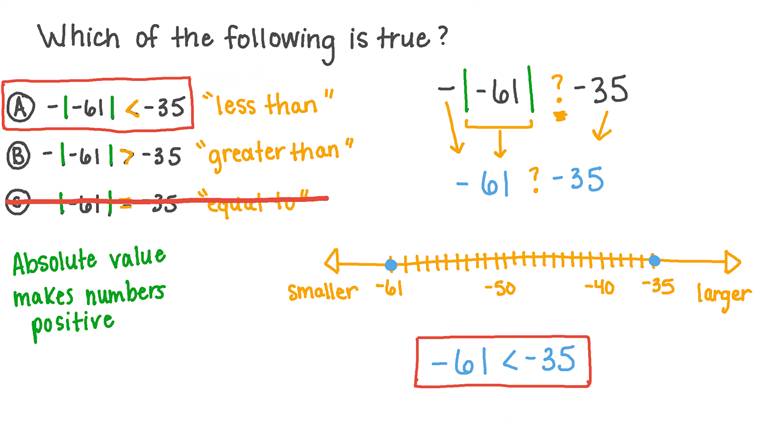 Which of the following is true?
A -|-61| < -35 "less than"
B -|-61| > -35 "greater than"
C -|-61| = -35 "equal to"
Absolute value
makes numbers
positive
-|-61| ? -35
-61 ? -35
smaller -61 -50 -40 -35 larger
-61 < -35